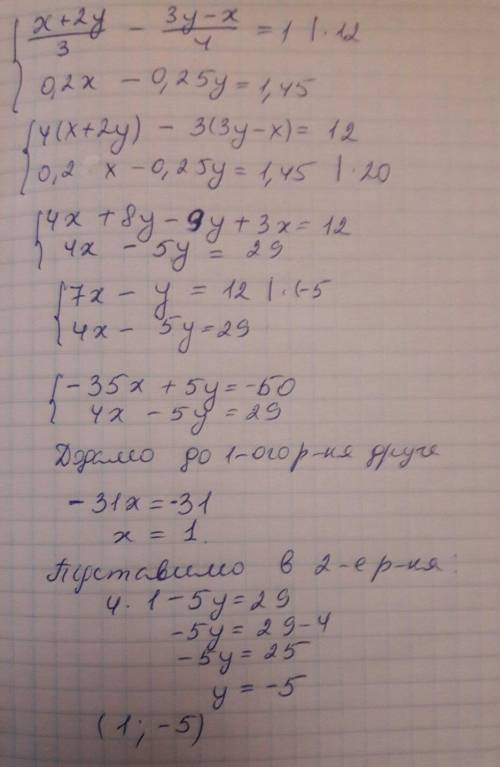 { (x+2y)/3 - (3y-x)/4 = 1 | · 12
0,2x - 0,25y = 1,45
{ 4(x+2y) - 3(3y-x) = 12
0,2 x - 0,25y = 1,45 | · 20
{ 4x + 8y - 9y + 3x = 12
4x - 5y = 29
{ 7x - y = 12 | · (-5
4x - 5y = 29
{ -35x + 5y = -60
4x - 5y = 29
Додамо до 1-ого р-ня друге
-31x = -31
x = 1.
Підставимо в 2-е р-ня:
4 · 1 - 5y = 29
-5y = 29 - 4
-5y = 25
y = -5
(1; -5)